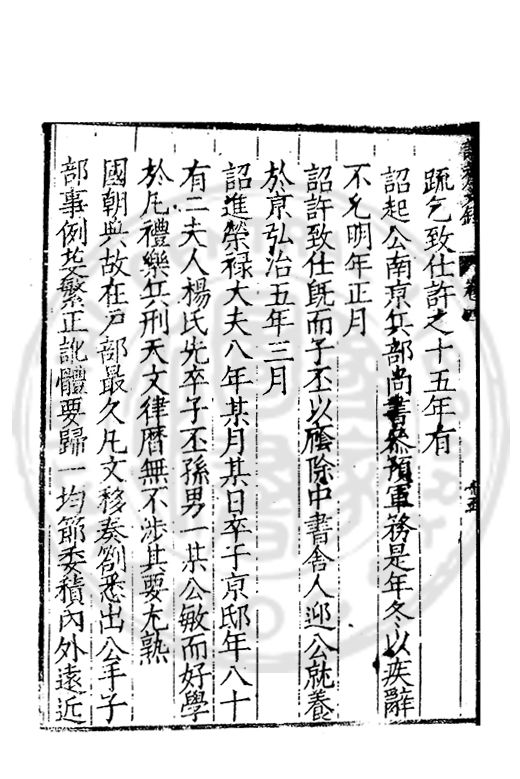 疏乞致仕許之十五年有
詔起公南京兵部尚書叅預軍務是年冬以疾辭
不允明年正月
詔許致仕旣而子丕以䕃除中書舍人迎公就養
於京弘治五年三月
詔進榮禄大夫八年某月某日卒于京邸年八十
有二夫人楊氏先卒子丕孫男一某公敏而好學
於凡禮樂兵刑天文律曆無不涉其要尤熟
國朝典故在戸部最久凡文移奏劄悉出公手子
部事例芟繁正訛體要歸一均節委積內外遠近